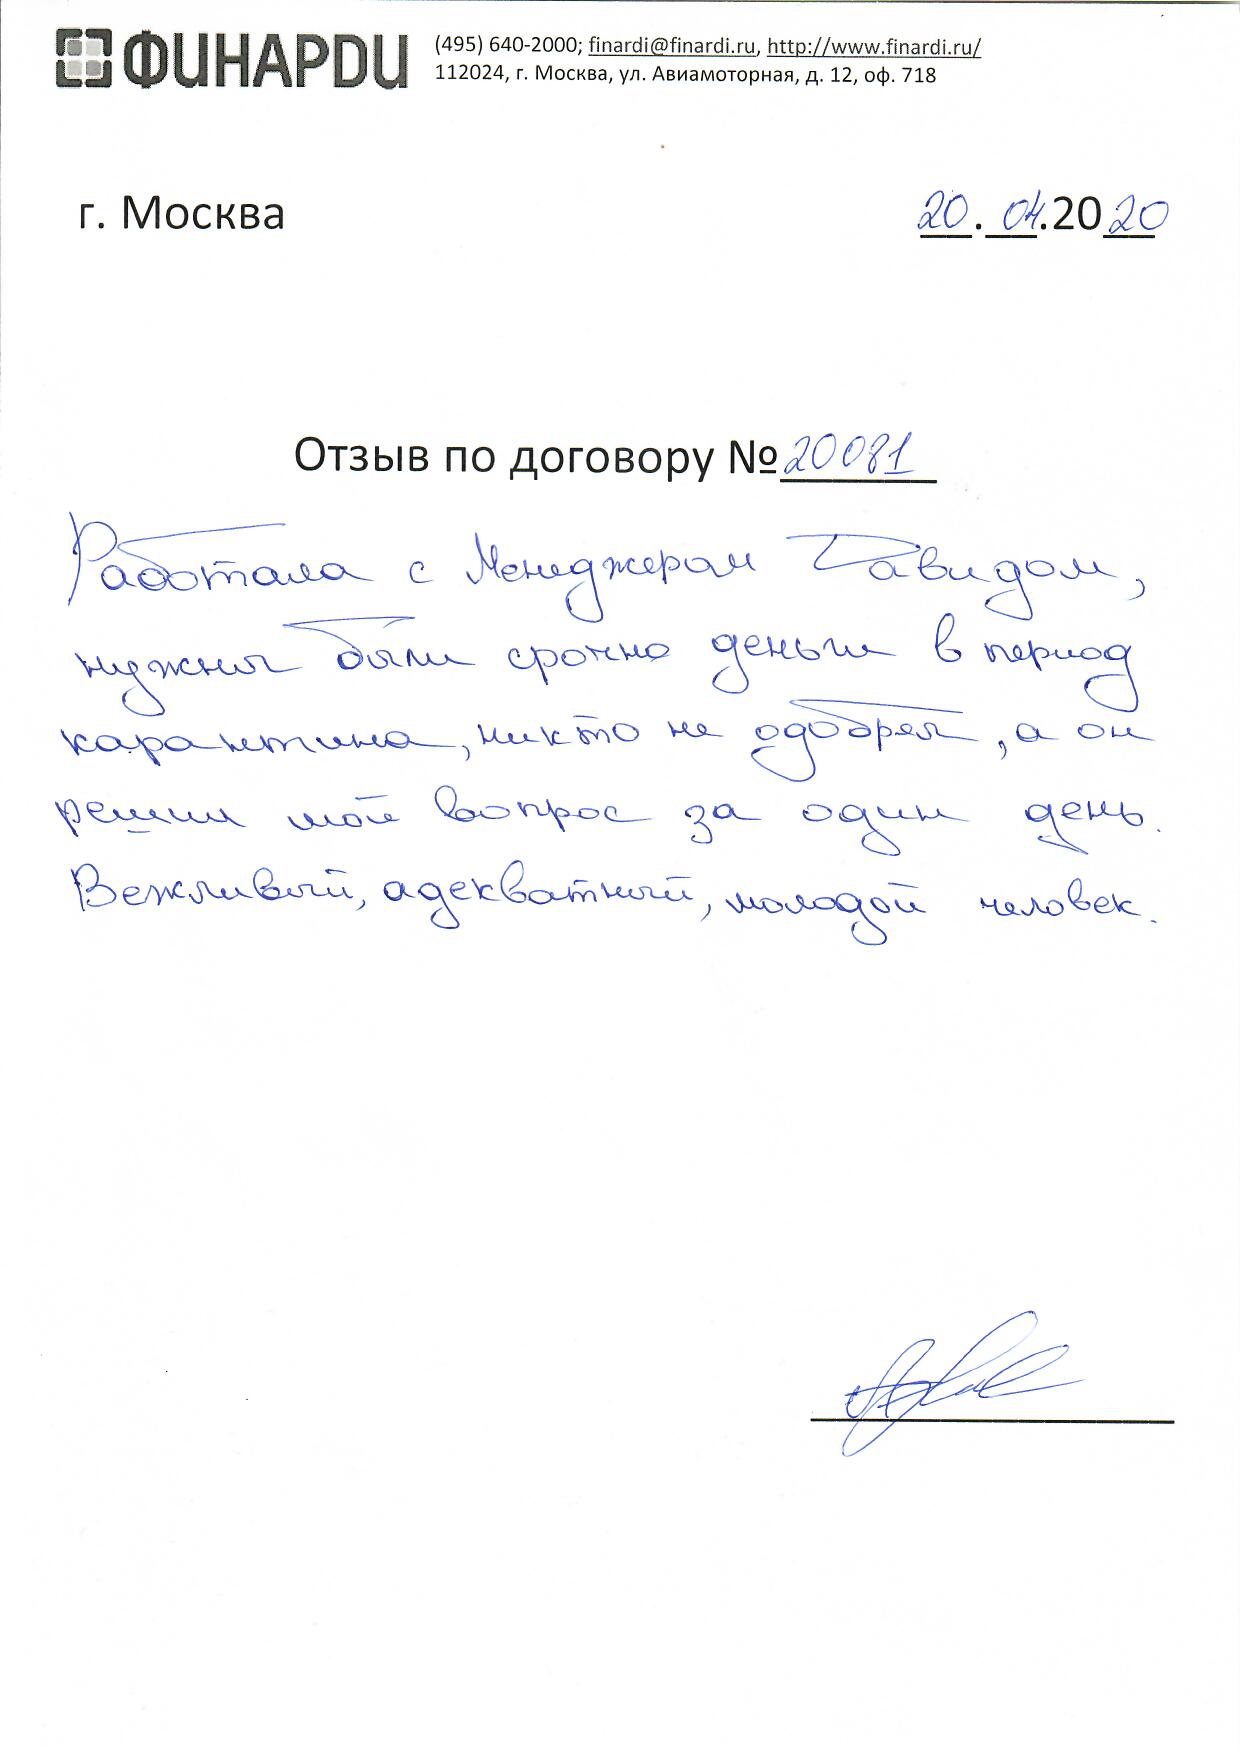 ФИНАРDИ
(495) 640-2000; finardi@finardi.ru, http://www.finardi.ru/
112024, г. Москва, ул. Авиамоторная, д. 12, оф. 718
г. Москва
20.04.2020
Отзыв по договору №20081
Работала с Менеджером Давидом,
нужны были срочно деньги в период
карантина, никто не одобрял, а он
решил мой вопрос за один день.
Вежливый, адекватный, молодой человек.